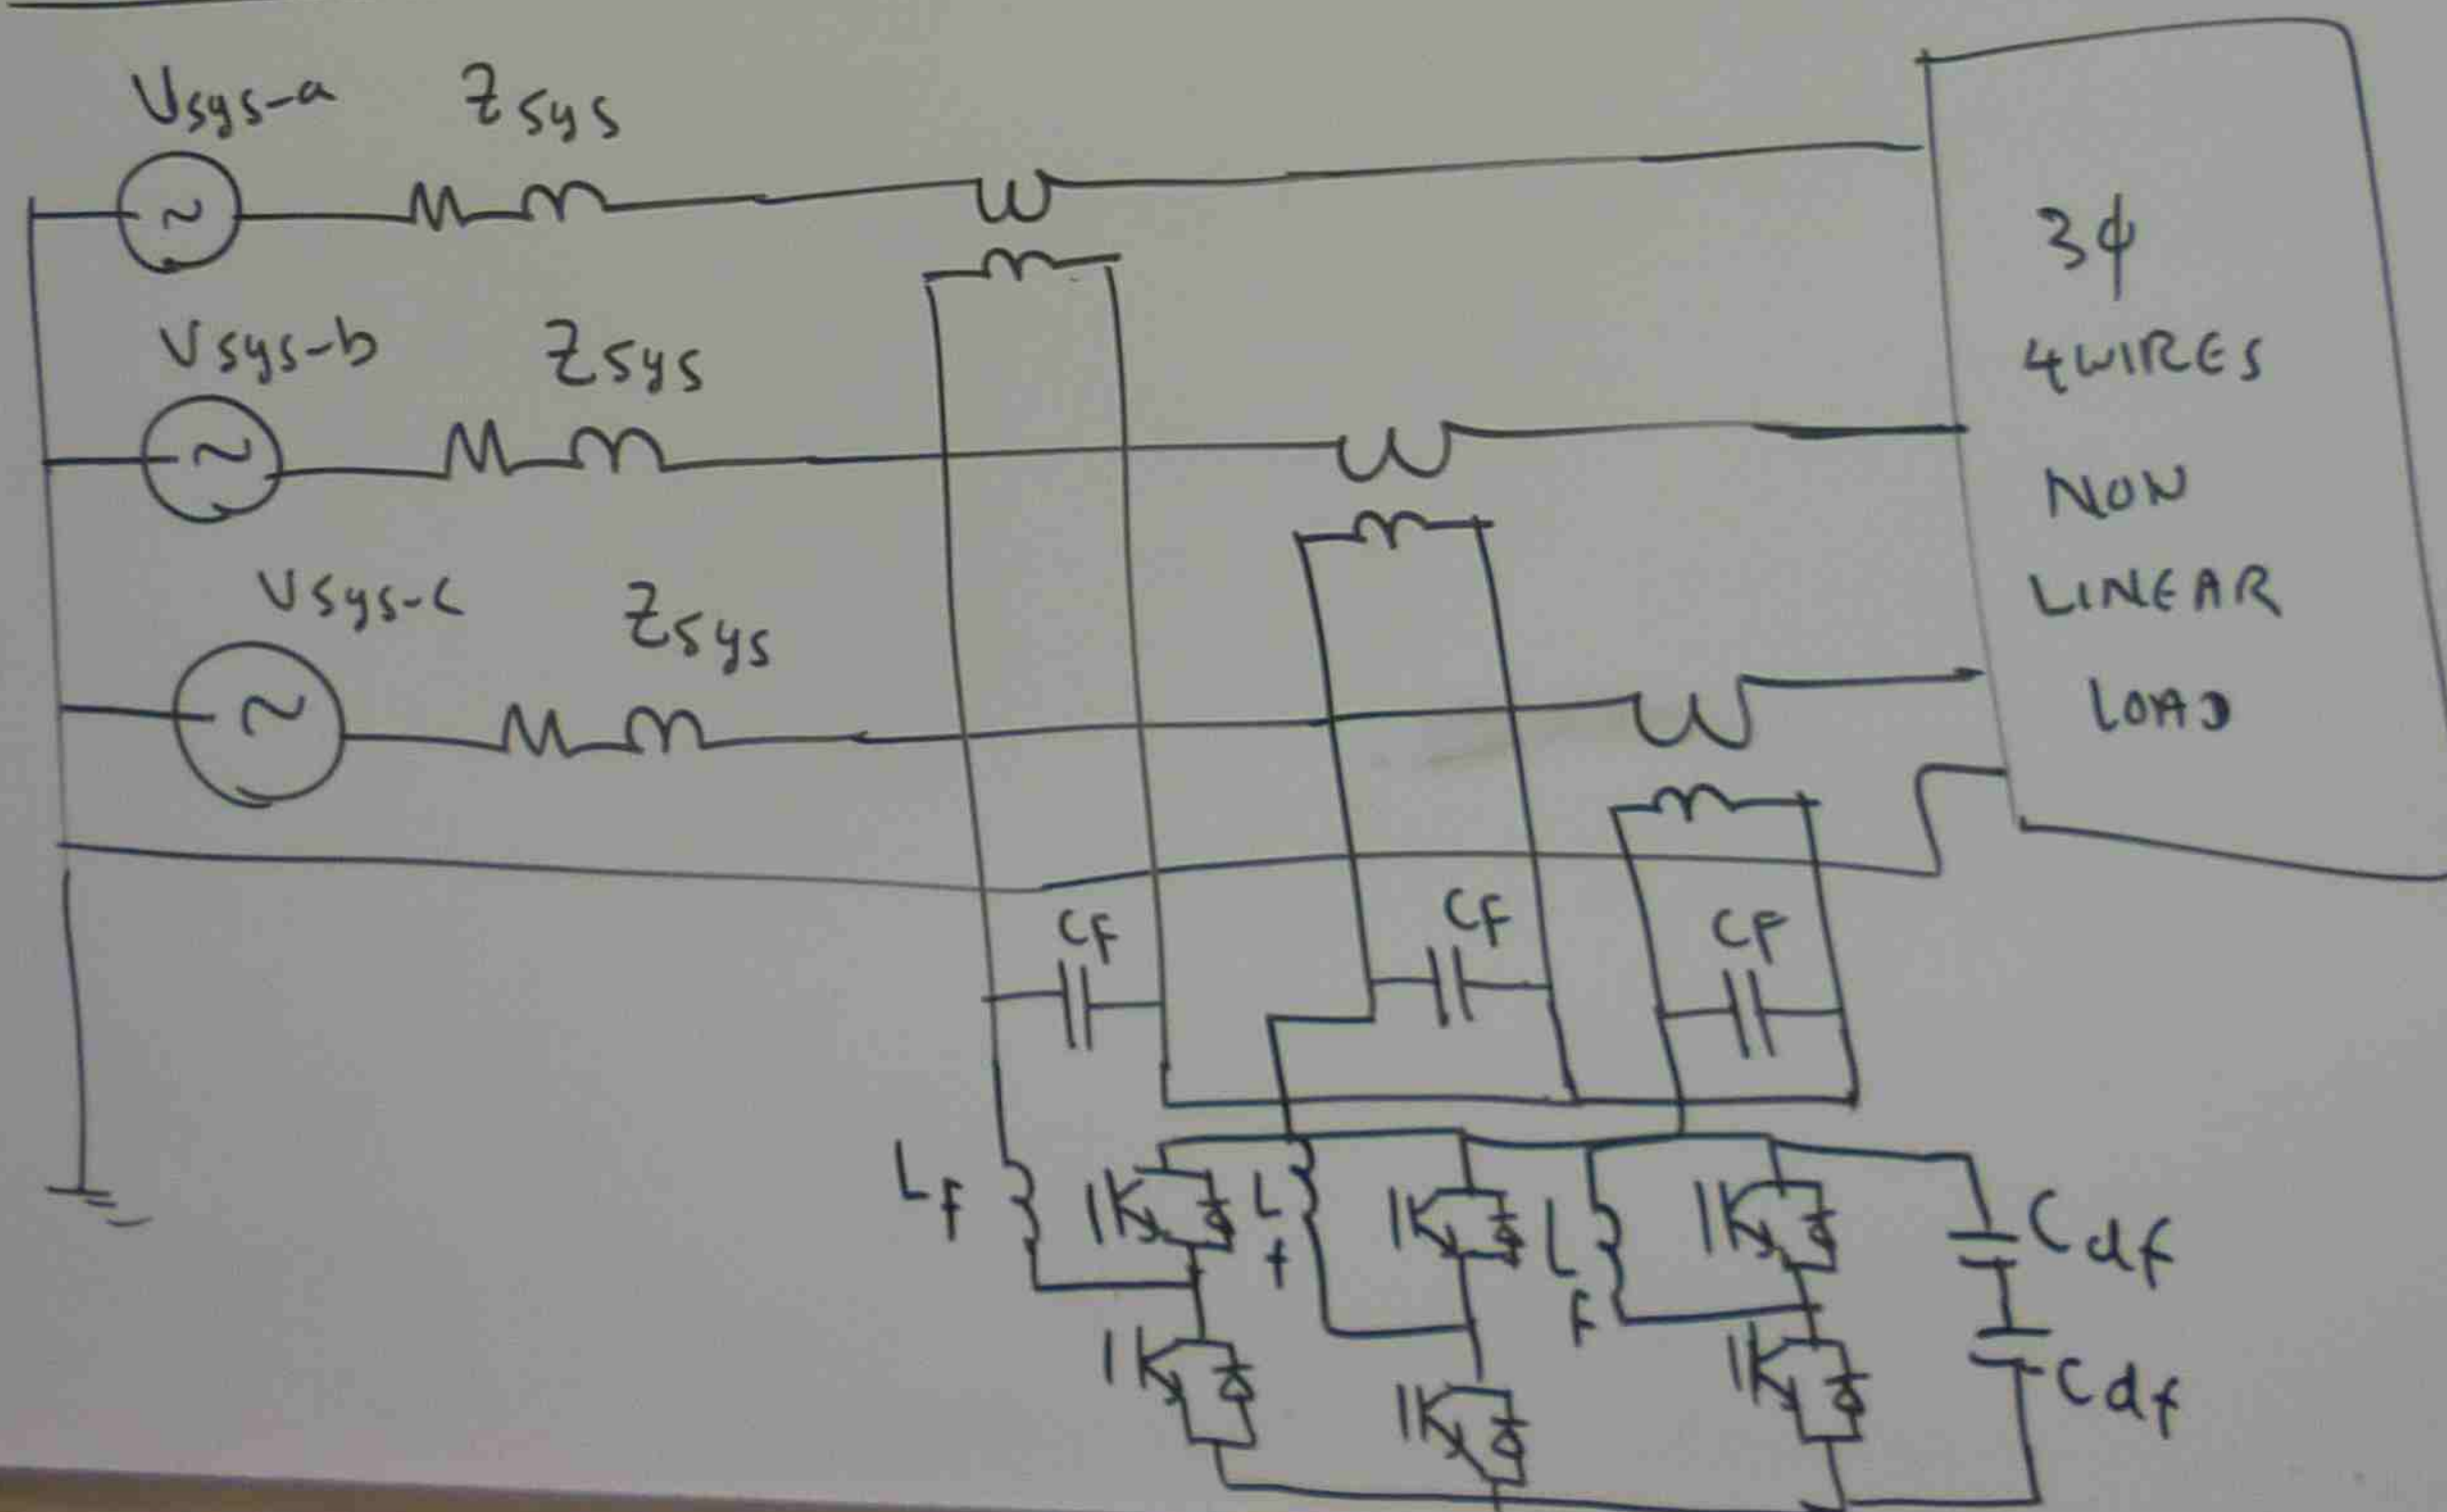 Vsys-a Zsys
Vsys-b Zsys
Vsys-c Zsys
3ϕ
4WIRES
NON
LINEAR
LOAD
CF CF CF
Lf Lf LF
Cdf
Cdf